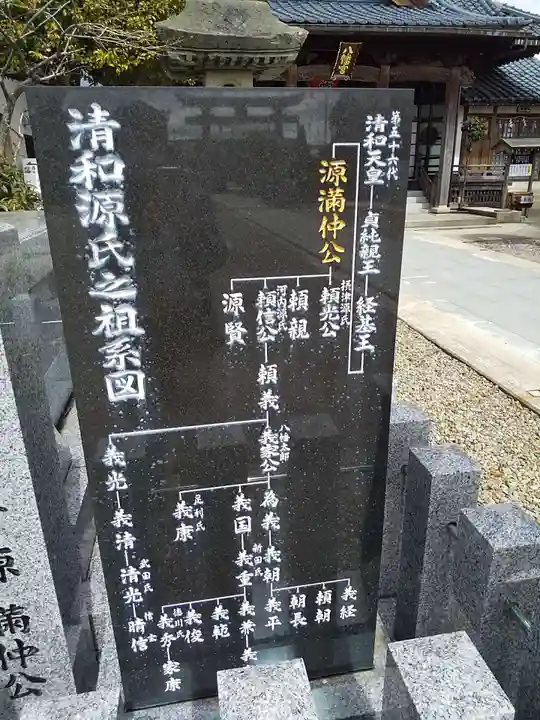 八幡宮
第五十六代
清和天皇
貞純親王
経基王
源満仲公
摂津源氏
頼光公
頼親
河内源氏
頼信公
源賢
頼義
八幡太郎
義家公
義光
為義
義国
足利氏
義康
義朝
新田氏
義重
義清
武田氏
清光
信玄
晴信
義経
頼朝
朝長
義平
義兼
義
義範
義俊
徳川氏
義季
家康
清和源氏之祖系図
源満仲公